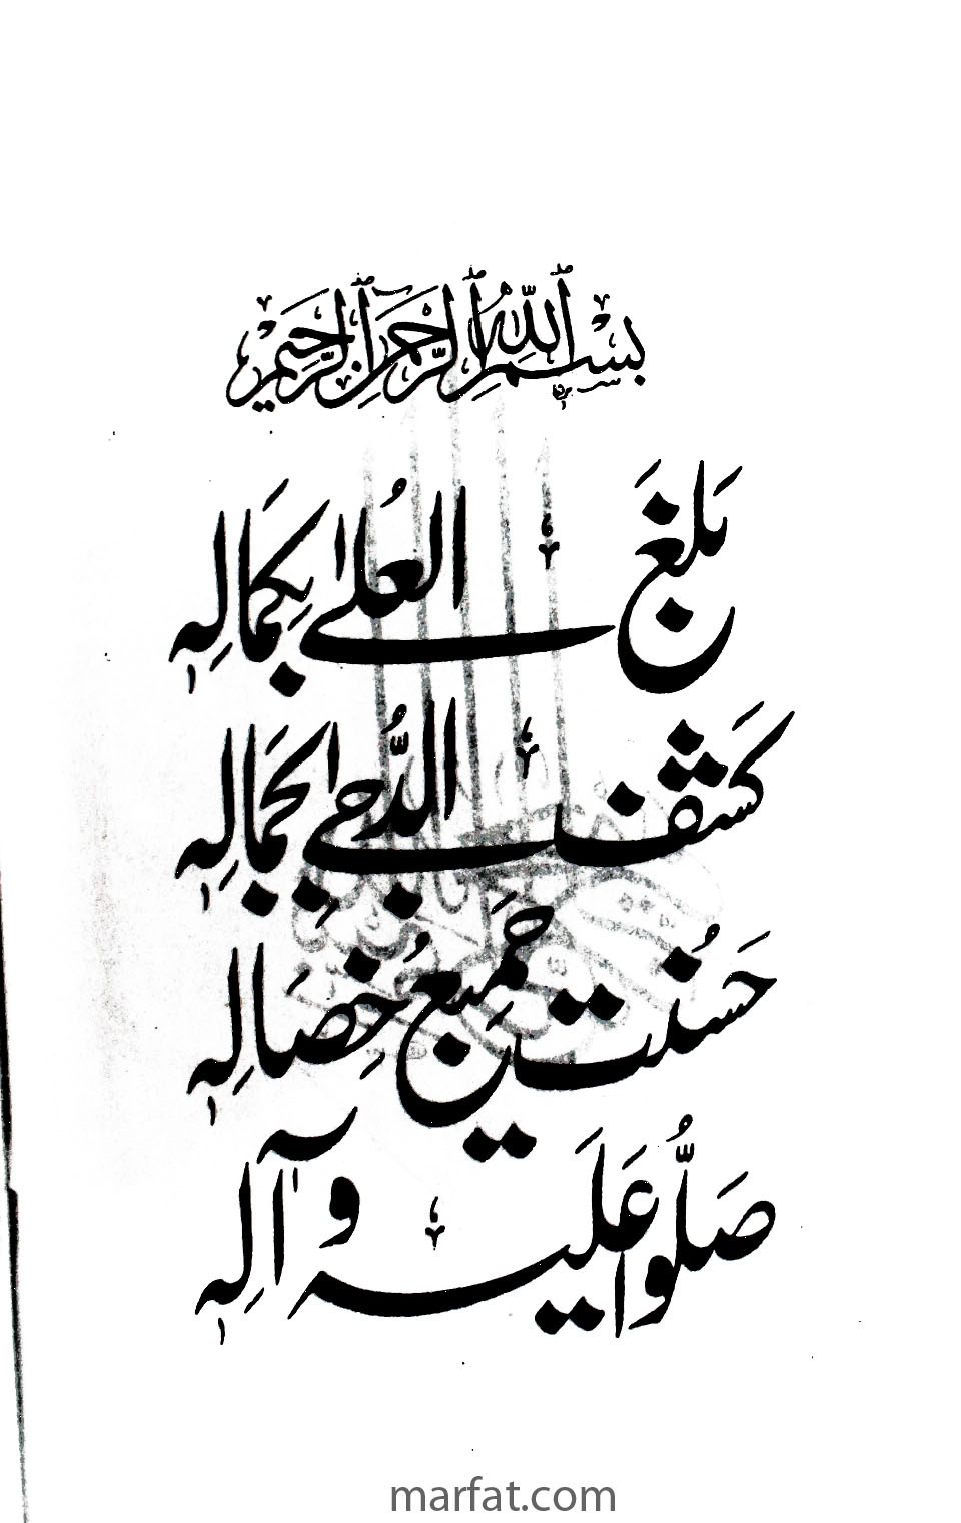 بِسْمِ ٱللَّهِ ٱلرَّحْمَٰنِ ٱلرَّحِيمِ
بَلَغَ العُلٰے بِكَمَالِهٖ
كَشَفَ الدُّجٰے بِجَمَالِهٖ
حَسُنَتْ جَمِيعُ خِصَالِهٖ
صَلُّوا عَلَيْهِ وَآلِهٖ
marfat.com